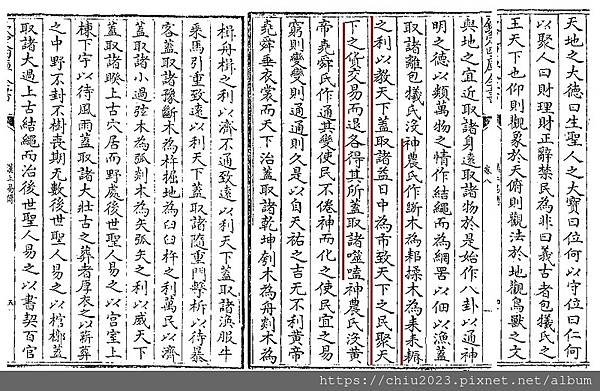 天地之大德曰生聖人之大寶曰位何以守位曰仁何
以聚人曰財理財正辭禁民為非曰義古者包犧氏之
王天下也仰則觀象於天俯則觀法於地觀鳥獸之文
卷八
與地之宜近取諸身遠取諸物於是始作八卦以通神
明之德以類萬物之情作結繩而為網罟以佃以漁蓋
取諸離包犧氏沒神農氏作斲木為耜揉木為耒耒耨
之利以教天下蓋取諸益日中為市致天下之民聚天
下之貨交易而退各得其所蓋取諸噬嗑神農氏沒黃
帝堯舜氏作通其變使民不倦神而化之使民宜之易
窮則變變則通通則久是以自天祐之吉无不利黃帝
堯舜垂衣裳而天下治蓋取諸乾坤刳木為舟剡木為
楫舟楫之利以濟不通致遠以利天下蓋取諸渙服牛
乘馬引重致遠以利天下蓋取諸隨重門擊柝以待暴
客蓋取諸豫斷木為杵掘地為臼臼杵之利萬民以濟
蓋取諸小過弦木為弧剡木為矢弧矢之利以威天下
蓋取諸睽上古穴居而野處後世聖人易之以宮室上
棟下宇以待風雨蓋取諸大壯古之葬者厚衣之以薪葬
之中野不封不樹喪期无數後世聖人易之以棺槨蓋
取諸大過上古結繩而治後世聖人易之以書契百官
漢上易傳
https://chiu2023.pixnet.net/album